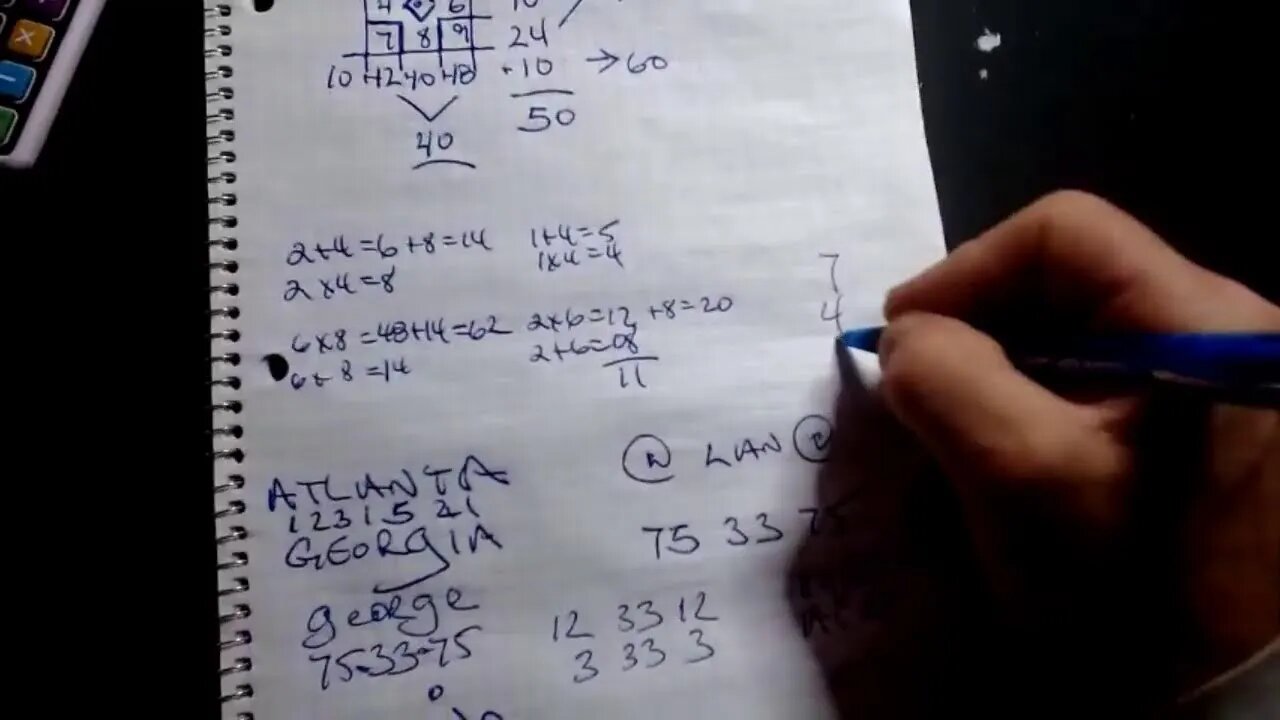 4 6 10
7 8 9 24
10 +12 40 +18 +10 → 60
50
40
2+4=6+8=14 1+4=5
2×4=8 1×4=4
7
4
6×8=48+14=62 2×6=12 +8=20
6+8=14 2+6=08
11
N LIAN
ATLANTA
123 1 5 21
GEORGIA
75 33 75
george
75.33.75
12 33 12
3 33 3